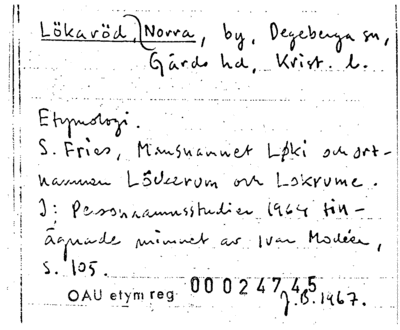 Lökaröd, Norra, by, Degeberga sn,
Gärds hd, Krist. l.
Etymologi.
S. Fries, Mansnamnet Løki och ort-
namnen Löckerum och Lokrume.
I: Personnamnsstudier 1964 till-
ägnade minnet av Ivar Modéer,
s. 105.
OAU etym reg 000247 45
J.B. 1967.